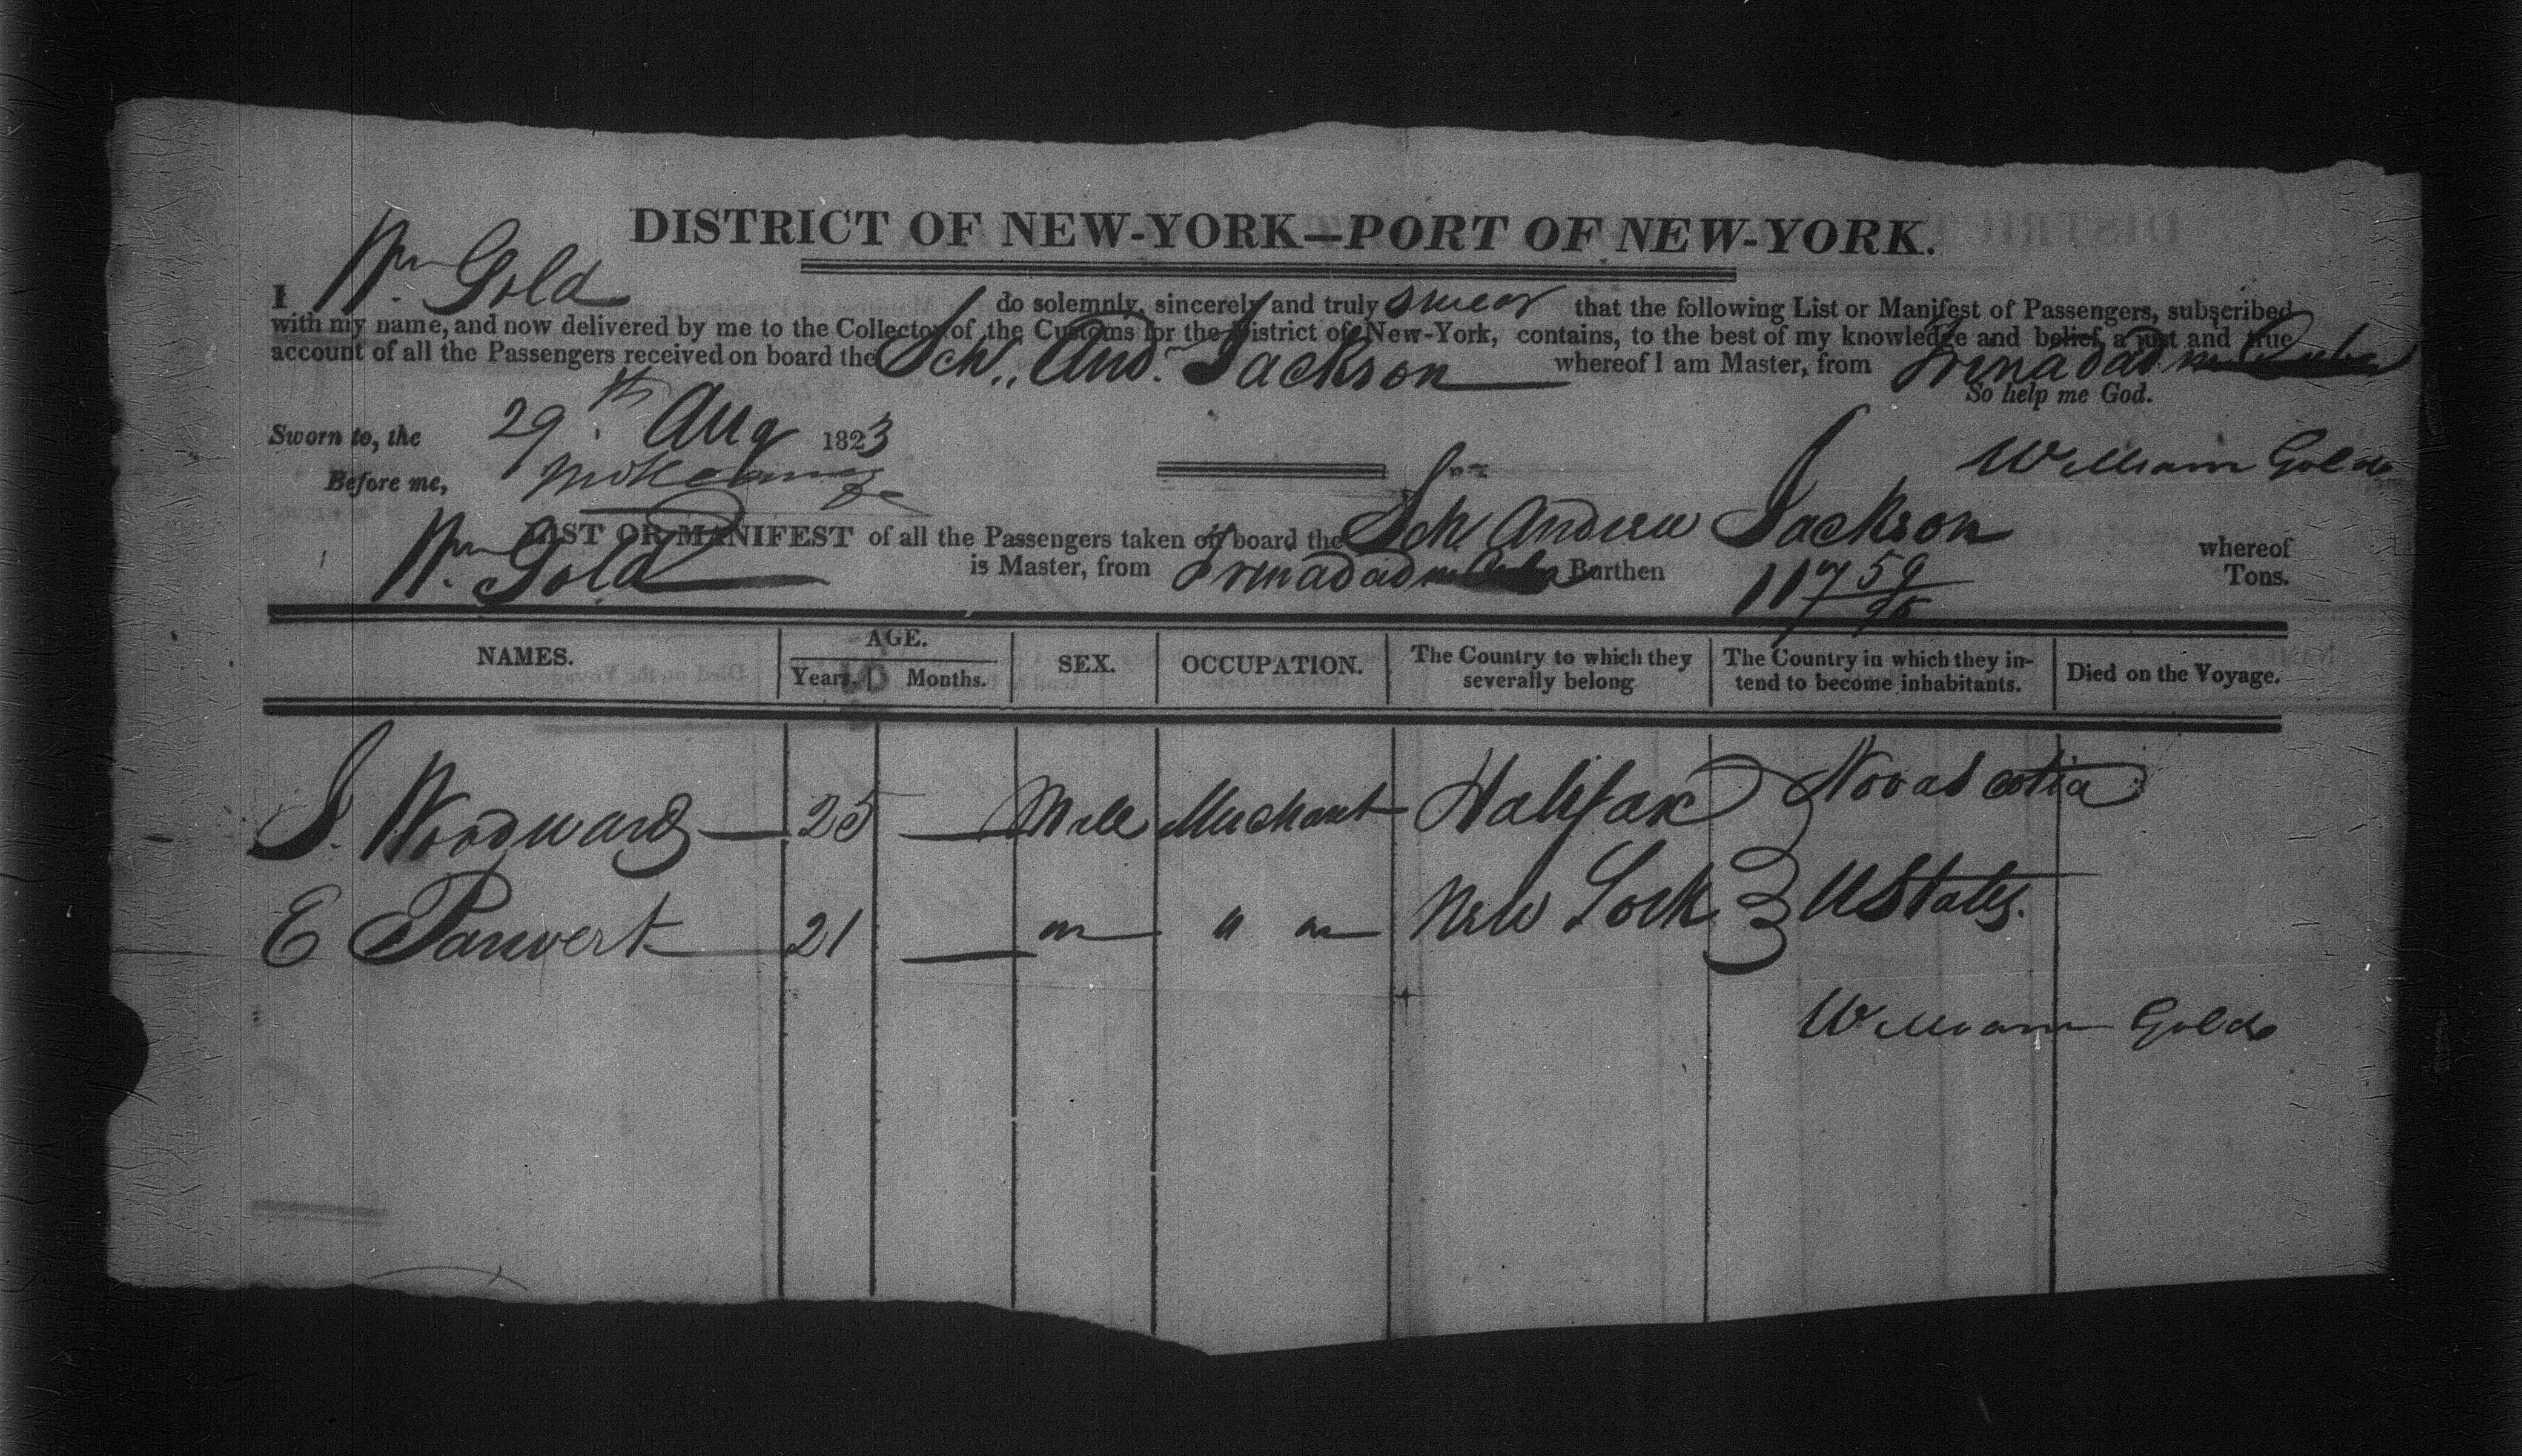 DISTRICT OF NEW-YORK—PORT OF NEW-YORK.
I Wm. Gold do solemnly, sincerely and truly swear that the following List or Manifest of Passengers, subscribed
with my name, and now delivered by me to the Collector of the Customs for the District of New-York, contains, to the best of my knowledge and belief, a just and true
account of all the Passengers received on board the Sch. And. Jackson whereof I am Master, from Trinadad in Cuba
So help me God.
Sworn to, the 29th Aug 1823
William Gold
Before me,
LIST OR MANIFEST of all the Passengers taken on board the Sch. Andrew Jackson whereof
Wm. Gold is Master, from Trinadad in Cuba Burthen 117 59/95 Tons.
NAMES. AGE. Years. Months. SEX. OCCUPATION. The Country to which they severally belong The Country in which they intend to become inhabitants. Died on the Voyage.
S. Woodward — 25 — Male Merchant Halifax Novascotia
E 21 — " " New York UStates.
William Gold